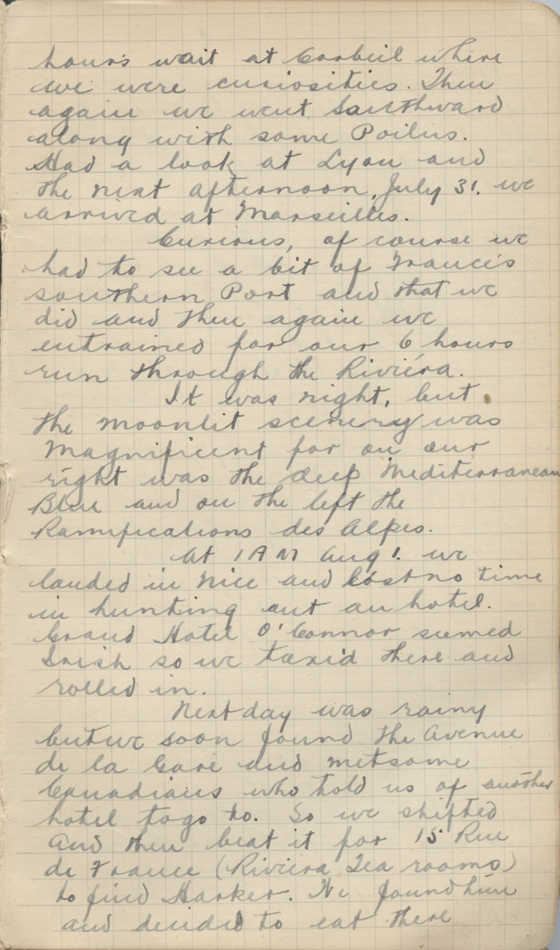 hours wait at Corbeil where
we were curiosities. Then
again we went Southward
along with some Poilus.
Had a look at Lyon and
the next afternoon, July 31. we
arrived at Marseilles.
Curious, of course we
had to see a bit of France's
southern Port and that we
did and then again we
entrained for our 6 hours
run through the Riviéra.
It was night, but
the moonlit scenery was
magnificent for on our
right was the deep Mediterranean
Blue and on the left the
Ramifications des Alpes.
At 1 AM Aug 1. we
landed in Nice and lost no time
in hunting out an hotel.
Grand Hotel O'Connor seemed
Irish so we taxi'd there and
rolled in.
Next day was rainy
but we soon found the Avenue
de la Gare and met some
Canadians who told us of another
hotel to go to. So we shifted
and then beat it for 15 Rue
de France (Riviera Tea rooms)
to find Harker. We found him
and decided to eat there